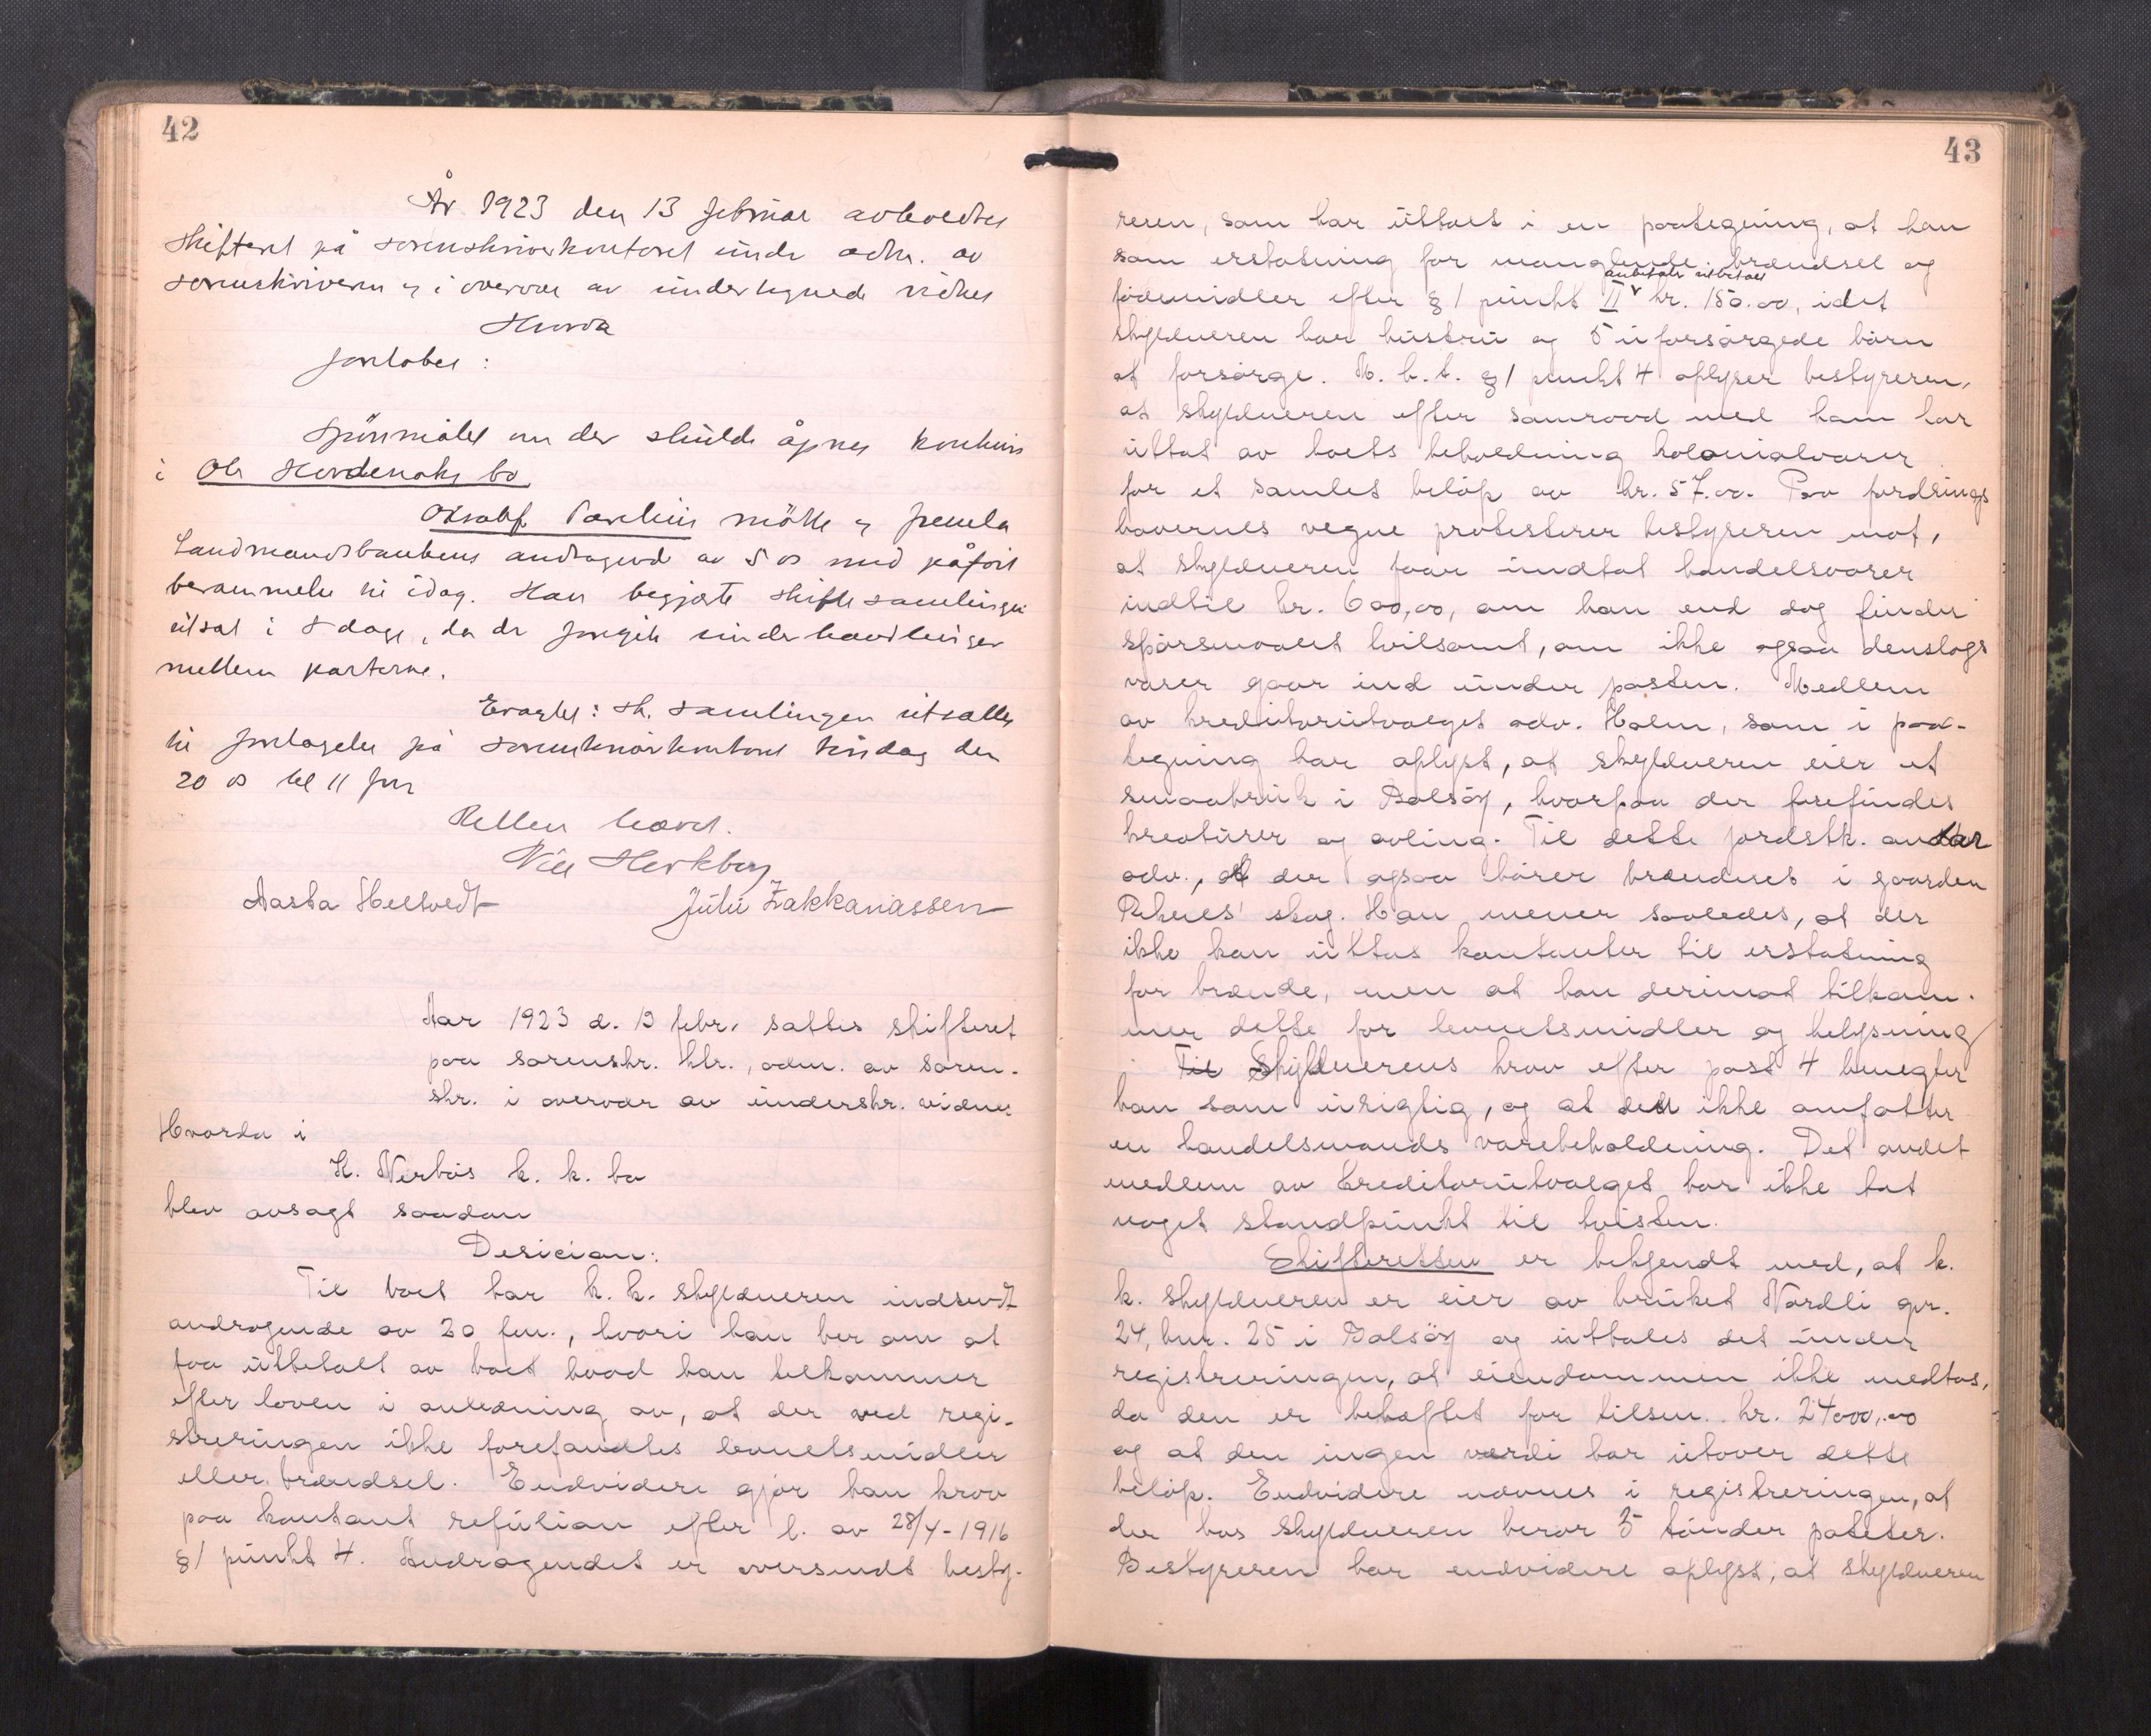 42
År 1923 den 13 februar avholdtes
skifteret på sorenskriverkontoret under adm. av
sorenskriveren og i overvær av undertegnede vidner
Hvorda
foretokes:
Spörsmålet om der skulde åpnes konkurs
i Ola Hordenaks bo
Oksabf. Paulius mötte og freml.
Landmandsbankens andragend av 5 ds med påfört
berammelse til idag. Han begjærte skiftesamlingen
utsat i 8 dage, da der foregik underhandlinger
mellem parterne.
Eragtet: Sk. samlingen utsattes
til foretagelse på sorenskriverkontoret tirsdag den
20 ds kl 11 fm
Retten hævet.
Nils Herkberg
Aasta Heltvedt Juliu Zakkariassen
Aar 1923 d. 13 febr. sattes skifteret
paa sorenskr. ktr., adm. av soren-
skr. i overvær av underskr. vidner
Hvorda i
K. Nerbös k. k. bo
blev avsagt saadan
Desician:
Til boet har k. k. skyldneren indsendt
andragende av 20 jan., hvori han ber om at
faa utbetalt av boet hvad han tilkommer
efter loven i anledning av, at der ved regi-
streringen ikke forefandtes levnetsmidler
eller brændsel. Endvidere gjör han krav
paa kontant refusion efter l. av 28/4-1916
§1 punkt 4. Andragendet er oversendt besty-
43
reren, som har uttalt i en paategning, at han
som erstatning for manglende brændsel og
anbefaler utbetalt
födemidler efter §1 punkt II v kr. 150.00, idet
skyldneren har hustru og 5 uforsörgede börn
at forsörge. M. h. t. §1 punkt 4 oplyser bestyreren,
at skyldneren efter samraad med ham har
uttat av boets beholdning kolonialvarer
for et samlet belöp av kr. 57.00. Paa fordrings
havernes vegne protesterer bestyreren mot,
at skyldneren faar undtat handelsvarer
indtil kr. 600,00, om han end dog finder
spörsmaalet tvilsomt, om ikke ogsaa denslags
varer gaar ind under posten. Medlem
av kreditorutvalget adv. Holm, som i paa-
tegning har oplyst, at skyldneren eier et
smaabruk i Bolsöy, hvorpaa der forefindes
kreaturer og avling. Til dette jordstk. andtar
adv., at der ogsaa hörer brænderet i gaarden
Reknes' skog. Han mener saaledes, at der
ikke kan uttas kontanter til erstatning
for brænde, men at han derimot tilkom-
mer dette for levnetsmidler og belysning
Til Skyldnerens krav efter post 4 benegter
han som urigtig, og at den ikke omfatter
en handelsmands varebeholdning. Det andet
medlem av kreditorutvalget har ikke tat
noget standpunkt til tvisten.
Skifteretten er bekjendt med, at k.
k. skyldneren er eier av bruket Nordli gnr.
24, bnr. 25 i Bolsöy og uttales det under
registreringen, at eiendommen ikke medtas,
da den er beheftet for tilsm. kr. 24000,00
og at den ingen værdi har utover dette
belöp. Endvidere nævnes i registreringen, at
der hos skyldneren beror 3 tönder poteter.
Bestyreren har endvidere oplyst, at skyldneren